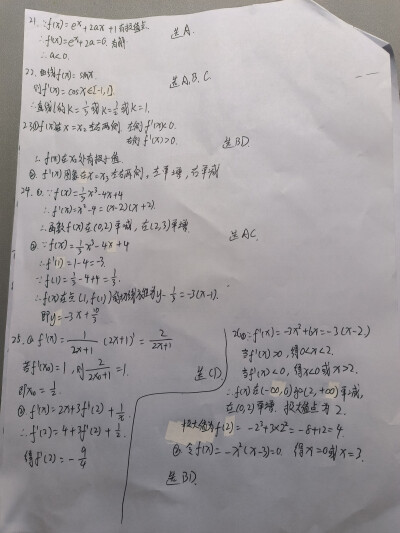 21. ∵f(x)=eˣ+2ax+1有极值点.
∴f'(x)=eˣ+2a=0. 有解. 选A.
∴a<0.
22. 曲线f(x)=sinx.
则f'(x)=cosx∈[-1,1]. 选A.B.C.
∴直线l的k=1/3或k=1/2或k=1.
在x=x₂左右两侧, 左侧f'(x)<0.
右侧f'(x)>0. 选BD.
∴f(x)在x₂处有极小值.
② f'(x)图象在x=x₃左右两侧, 左单增, 右单减
24. ①. ∵f(x)=1/3x³-4x+4
∴f'(x)=x²-4=(x-2)(x+2).
∴函数f(x)在(0,2)单减, 在(2,3)单增
② ∵f(x)=1/3x³-4x+4 选AC.
∴f'(1)=1-4=-3.
∴f(1)=1/3-4+4=1/3.
∴f(x)在点(1,f(1))的切线方程为y-1/3=-3(x-1).
即y=-3x+10/3
25. ① f'(x)=1/(2x+1)·(2x+1)'=2/(2x+1)
若f'(x₀)=1, 则2/(2x₀+1)=1.
即x₀=1/2.
② f'(x)=2x+3f'(2)+1/x.
∴f'(2)=4+3f'(2)+1/2.
得f'(2)=-9/4
∵f'(x)=-3x²+6x=-3(x-2)
当f'(x)>0, 得0<x<2.
当f'(x)<0, 得x<0或x>2.
∴f(x)在(-∞,0)和(2,+∞)单减,
在(0,2)单增. 极大值点为2.
极大值为f(2)=-2³+3×2²=-8+12=4.
② 令f(x)=-x²(x-3)=0. 得x=0或x=3.
选BD.